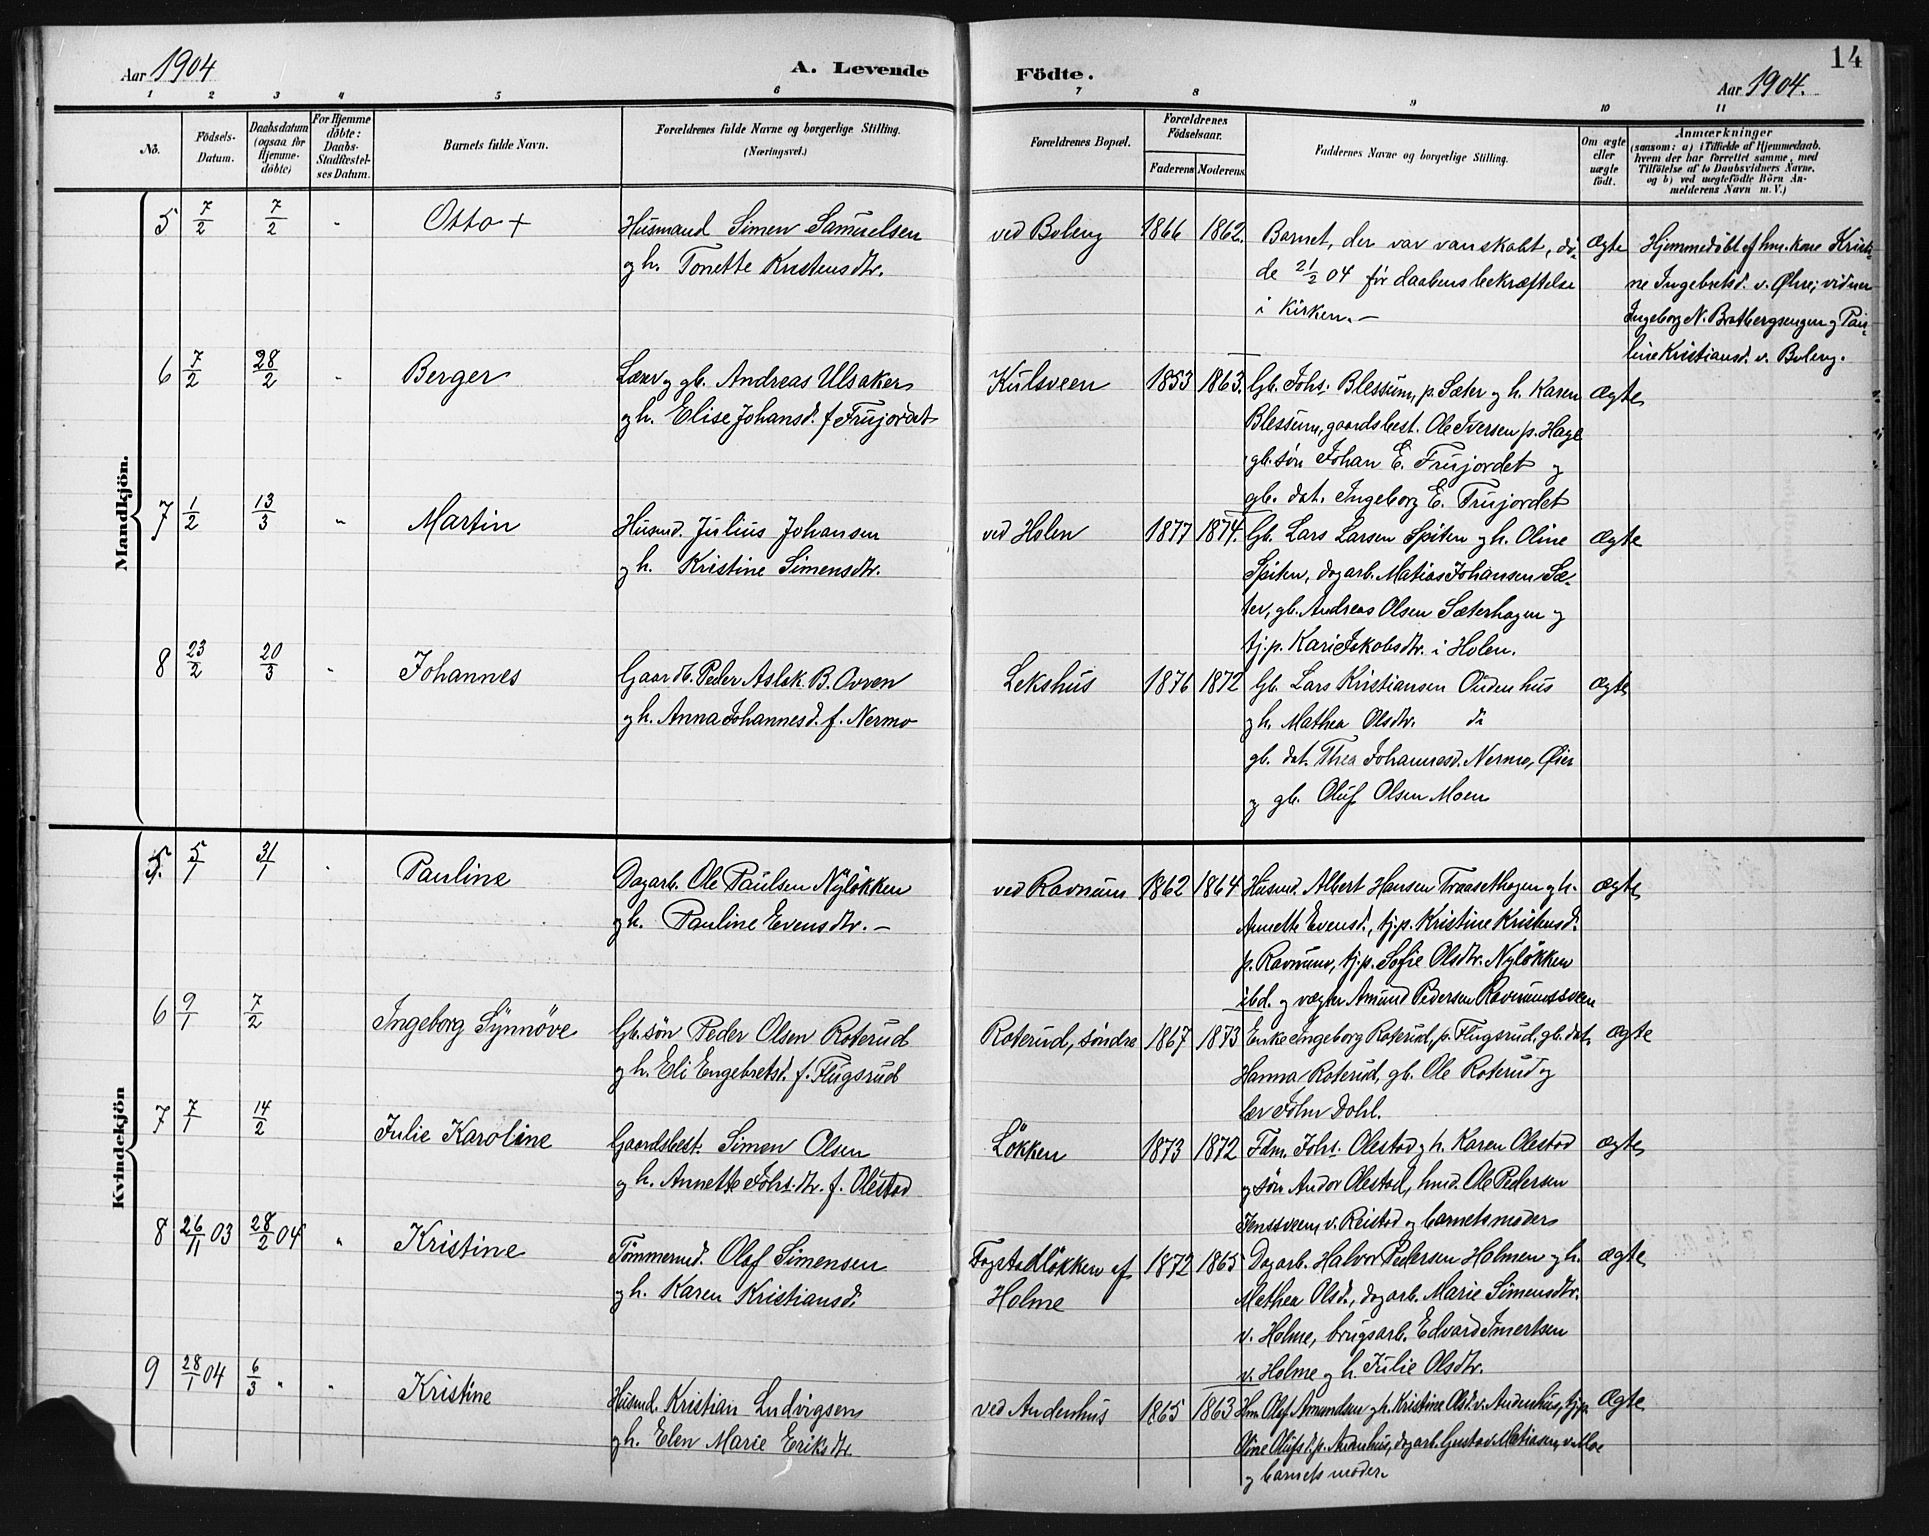 14
Aar 1904
A. Levende
Födte.
Aar 1904.
1 2 3 4 5 6 7 8 9 10 11
No.
Födsels-
Datum.
Daabsdatum
(ogsaa for
Hjemme-
döbte)
For Hjemme
döbte:
Daabs-
Stadfestel-
ses Datum.
Barnets fulde Navn.
Forældrenes fulde Navne og borgerlige Stilling.
(Næringsvei.)
Forældrenes Bopæl.
Forældrenes
Födselsaar.
Faderens
Moderens
Faddernes Navne og borgerlige Stilling.
Om ægte
eller
uægte
födt.
Anmærkninger
(saasom: a) i Tilfælde af Hjemmedaab,
hvem der har forrettet samme, med
Tilföielse af to Daabsvidners Navne,
og b) ved uægtefödte Börn An-
melderens Navn m. V.)
Mandkjön.
5 7/2 7/2 " Otto +
Husmand Simen Samuelsen
og h. Tonette Kristensdtr.
ved Boleng 1866 1862.
Barnet, der var vanskabt, dö-
de 21/2 04 för daabens bekræftelse
i Kirken. —
Ægte
Hjemmedöbt af hus.kone Kristi-
ne Ingebretsd. v. Öhre; vidner
Ingeborg N. Bratbergsengen og Pau-
line Kristiansd. v. Boleng.
6 7/2 28/2 " Berger
Lærer og gb. Andreas Ulsaker
og h. Elise Johansd. f. Frujordet
Kulsveen 1853 1863.
Gb. Johs. Blessum, p. Sæter og h. Karen
Blessum, gaardsbest. Ole Iversen p. Hage
gb. sön Johan E. Frujordet og
gb. dat. Ingeborg E. Frujordet
Ægte
7 1/2 13/3 " Martin
Husmd. Julius Johansen
og h. Kristine Simensdtr.
ved Holen 1877 1874.
Gb. Lars Larsen Spiten og h. Oline
Spiten, dagarb. Matias Johansen Sæ-
ter, gb. Andreas Olsen Sæterhagen og
tj.p. Kari Jakobsdtr. i Holen.
Ægte
8 23/2 20/3 " Johannes
Gaardb. Peder Aslak. B. Ovren
og h. Anna Johannesd. f. Nermo
Lekshus 1876 1872
Gb. Lars Kristiansen Oudenhus
og h. Mathea Olsdtr. do
gb. dat. Thea Johannesd. Nermo, Öier
og gb. Oluf Olsen Moen
Ægte
Kvindekjön
5. 5/1 31/1 " Pauline
Dagarb. Ole Paulsen Nylökken
og h. Pauline Evensdtr. —
ved Ravnum 1862 1864
Husmd. Albert Hansen Traasethagen og h.
Annette Evensd., tj.p. Kristine Kristensd.
p. Ravnum, tj.p. Sofie Olsdtr. Nylökken
ibd. og vægter Amund Pedersen Ravnumssveen
Ægte
6 9/1 7/2 Ingeborg Synnöve
Gb. sön Peder Olsen Roterud
og h. Eli Engebretsd. f. Flugsrud
Roterud, söndre 1867 1873
Enke Ingeborg Roterud, p. Flugsrud, gb. dat.
Hanna Roterud, gb. Ole Roterud og
lær John Dahl.
Ægte
7 7/1 14/2 Julie Karoline
Gaardsbest. Simen Olsen
og h. Annette Johs.dtr. f. Olestad
Lökken 1873 1872
Fdm. Johs. Olestad og h. Karen Olestad
og sön Andor Olestad, hmd. Ole Pedersen
Jenssveen v. Reistad og barnets moder
Ægte
8 26/11 03 28/2 04 " Kristine
Tömmermd. Olaf Simensen
og h. Karen Kristiansd.
Fogstadlökken af
Holme
1872 1865
Dagarb. Halvor Pedersen Holmen og h.
Mathea Olsd., dagarb. Marie Simensdtr.
v. Holme, brugsarb. Edvard Imertsen
v. Holme og h. Julie Olsdtr.
Ægte
9 28/1 04 6/3 " " Kristine
Husmd. Kristian Ludvigsen
og h. Elen Marie Eriksdtr.
ved Audenhus 1865 1863
Hm. Olaf Amundsen og h. Kristine Olsd. v. Audenhus, tj.p.
Oline Olufsd. p. Audenhus, dagarb. Gustav Matiasen, v. Moe
og barnets moder.
Ægte